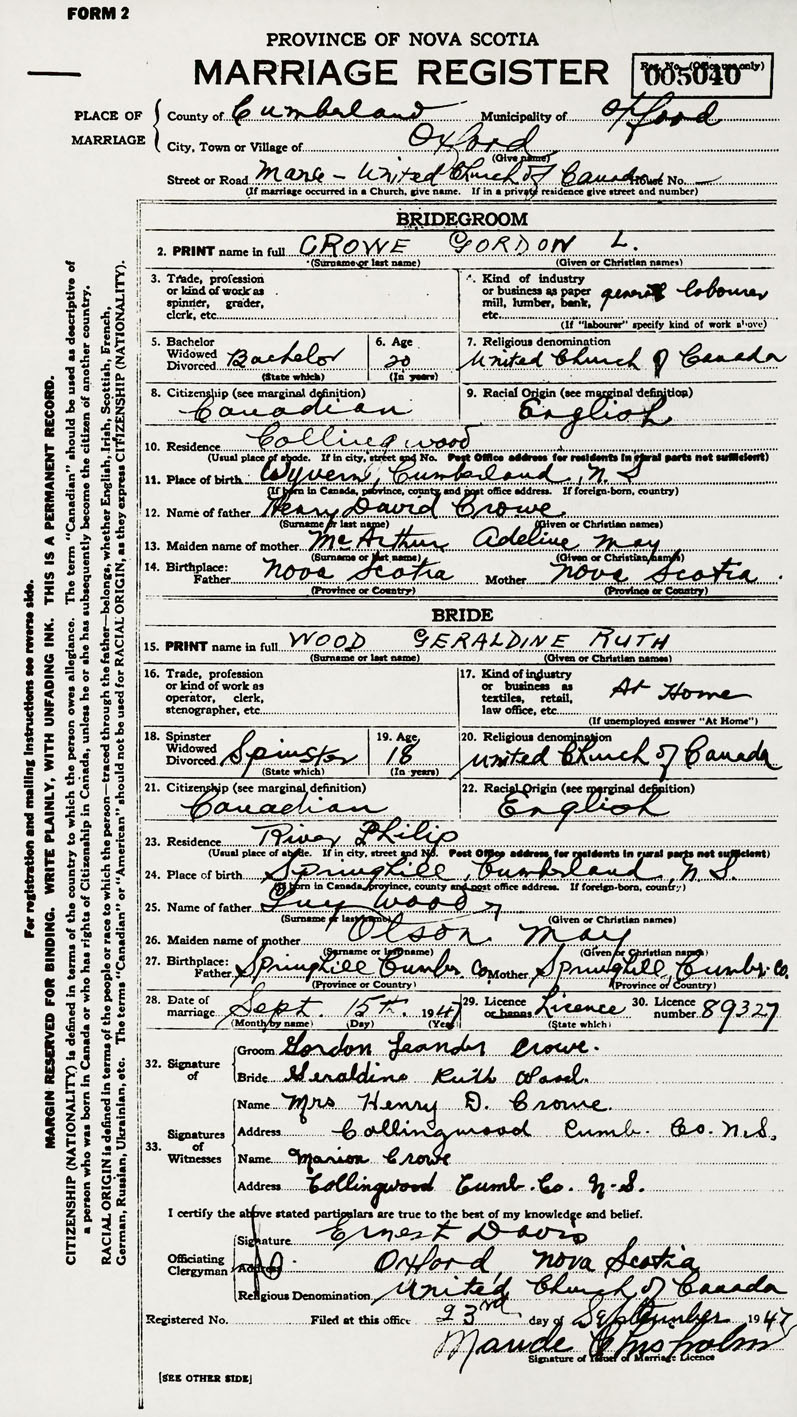 FORM 2
PROVINCE OF NOVA SCOTIA
MARRIAGE REGISTER
Reg. No. (Office use only)
005040
PLACE OF MARRIAGE
County of Cumberland Municipality of Oxford
City, Town or Village of Oxford
(Give name)
Street or Road Manse - United Church of Canada House No. —
(If marriage occurred in a Church, give name. If in a private residence give street and number)
BRIDEGROOM
2. PRINT name in full CROWE GORDON L.
(Surname or last name) (Given or Christian names)
3. Trade, profession or kind of work as spinner, grader, clerk, etc.
4. Kind of industry or business as paper mill, lumber, bank, etc. general labourer
(If "labourer" specify kind of work above)
5. Bachelor Widowed Divorced Bachelor
(State which)
6. Age 20
(In years)
7. Religious denomination
United Church of Canada
8. Citizenship (see marginal definition)
Canadian
9. Racial Origin (see marginal definition)
English
10. Residence Collingwood
(Usual place of abode. If in city, street and No. Post Office address for residents in rural parts not sufficient)
11. Place of birth Wyvern, Cumberland, N.S
(If born in Canada, province, county and post office address. If foreign-born, country)
12. Name of father Henry David Crowe
(Surname or last name) (Given or Christian names)
13. Maiden name of mother McArthur Adeline May
(Surname or last name) (Given or Christian names)
14. Birthplace: Father Nova Scotia Mother Nova Scotia.
(Province or Country) (Province or Country)
BRIDE
15. PRINT name in full WOOD GERALDINE RUTH
(Surname or last name) (Given or Christian names)
16. Trade, profession or kind of work as operator, clerk, stenographer, etc.
17. Kind of industry or business as textiles, retail, law office, etc. At Home
(If unemployed answer "At Home")
18. Spinster Widowed Divorced Spinster
(State which)
19. Age 18
(In years)
20. Religious denomination
United Church of Canada
21. Citizenship (see marginal definition)
Canadian
22. Racial Origin (see marginal definition)
English
23. Residence River Philip
(Usual place of abode. If in city, street and No. Post Office address for residents in rural parts not sufficient)
24. Place of birth Springhill, Cumberland, N.S.
(If born in Canada, province, county and post office address. If foreign-born, country)
25. Name of father Guy Wood
(Surname or last name) (Given or Christian names)
26. Maiden name of mother Olson May
(Surname or last name) (Given or Christian names)
27. Birthplace: Father Springhill Cumb. Co. Mother Springhill, Cumb. Co.
(Province or Country) (Province or Country)
28. Date of marriage Sept. 15th. 1947
(Month by name) (Day) (Year)
29. Licence or banns Licence
(State which)
30. Licence number 89327
32. Signature of
Groom Gordon Leander Crowe.
Bride Geraldine Ruth Wood.
33. Signatures of Witnesses
Name Mrs Henry D. Crowe.
Address Collingwood Cumb. Co. N.S.
Name Marion Crowe
Address Collingwood Cumb. Co. N.S.
I certify the above stated particulars are true to the best of my knowledge and belief.
Officiating Clergyman
Signature Ernest Davis
Address Oxford, Nova Scotia
Religious Denomination United Church of Canada
Registered No. Filed at this office 23rd day of September 1947
Maude Chisholm
Signature of Issuer of Marriage Licence
[SEE OTHER SIDE]
For registration and mailing instructions see reverse side.
MARGIN RESERVED FOR BINDING. WRITE PLAINLY, WITH UNFADING INK. THIS IS A PERMANENT RECORD.
CITIZENSHIP (NATIONALITY) is defined in terms of the country to which the person owes allegiance. The term "Canadian" should be used as descriptive of
a person who was born in Canada or who has rights of Citizenship in Canada, unless he or she has subsequently become the citizen of another country.
RACIAL ORIGIN is defined in terms of the people or race to which the person—traced through the father—belongs, whether English, Irish, Scottish, French,
German, Russian, Ukrainian, etc. The terms "Canadian" or "American" should not be used for RACIAL ORIGIN, as they express CITIZENSHIP (NATIONALITY).